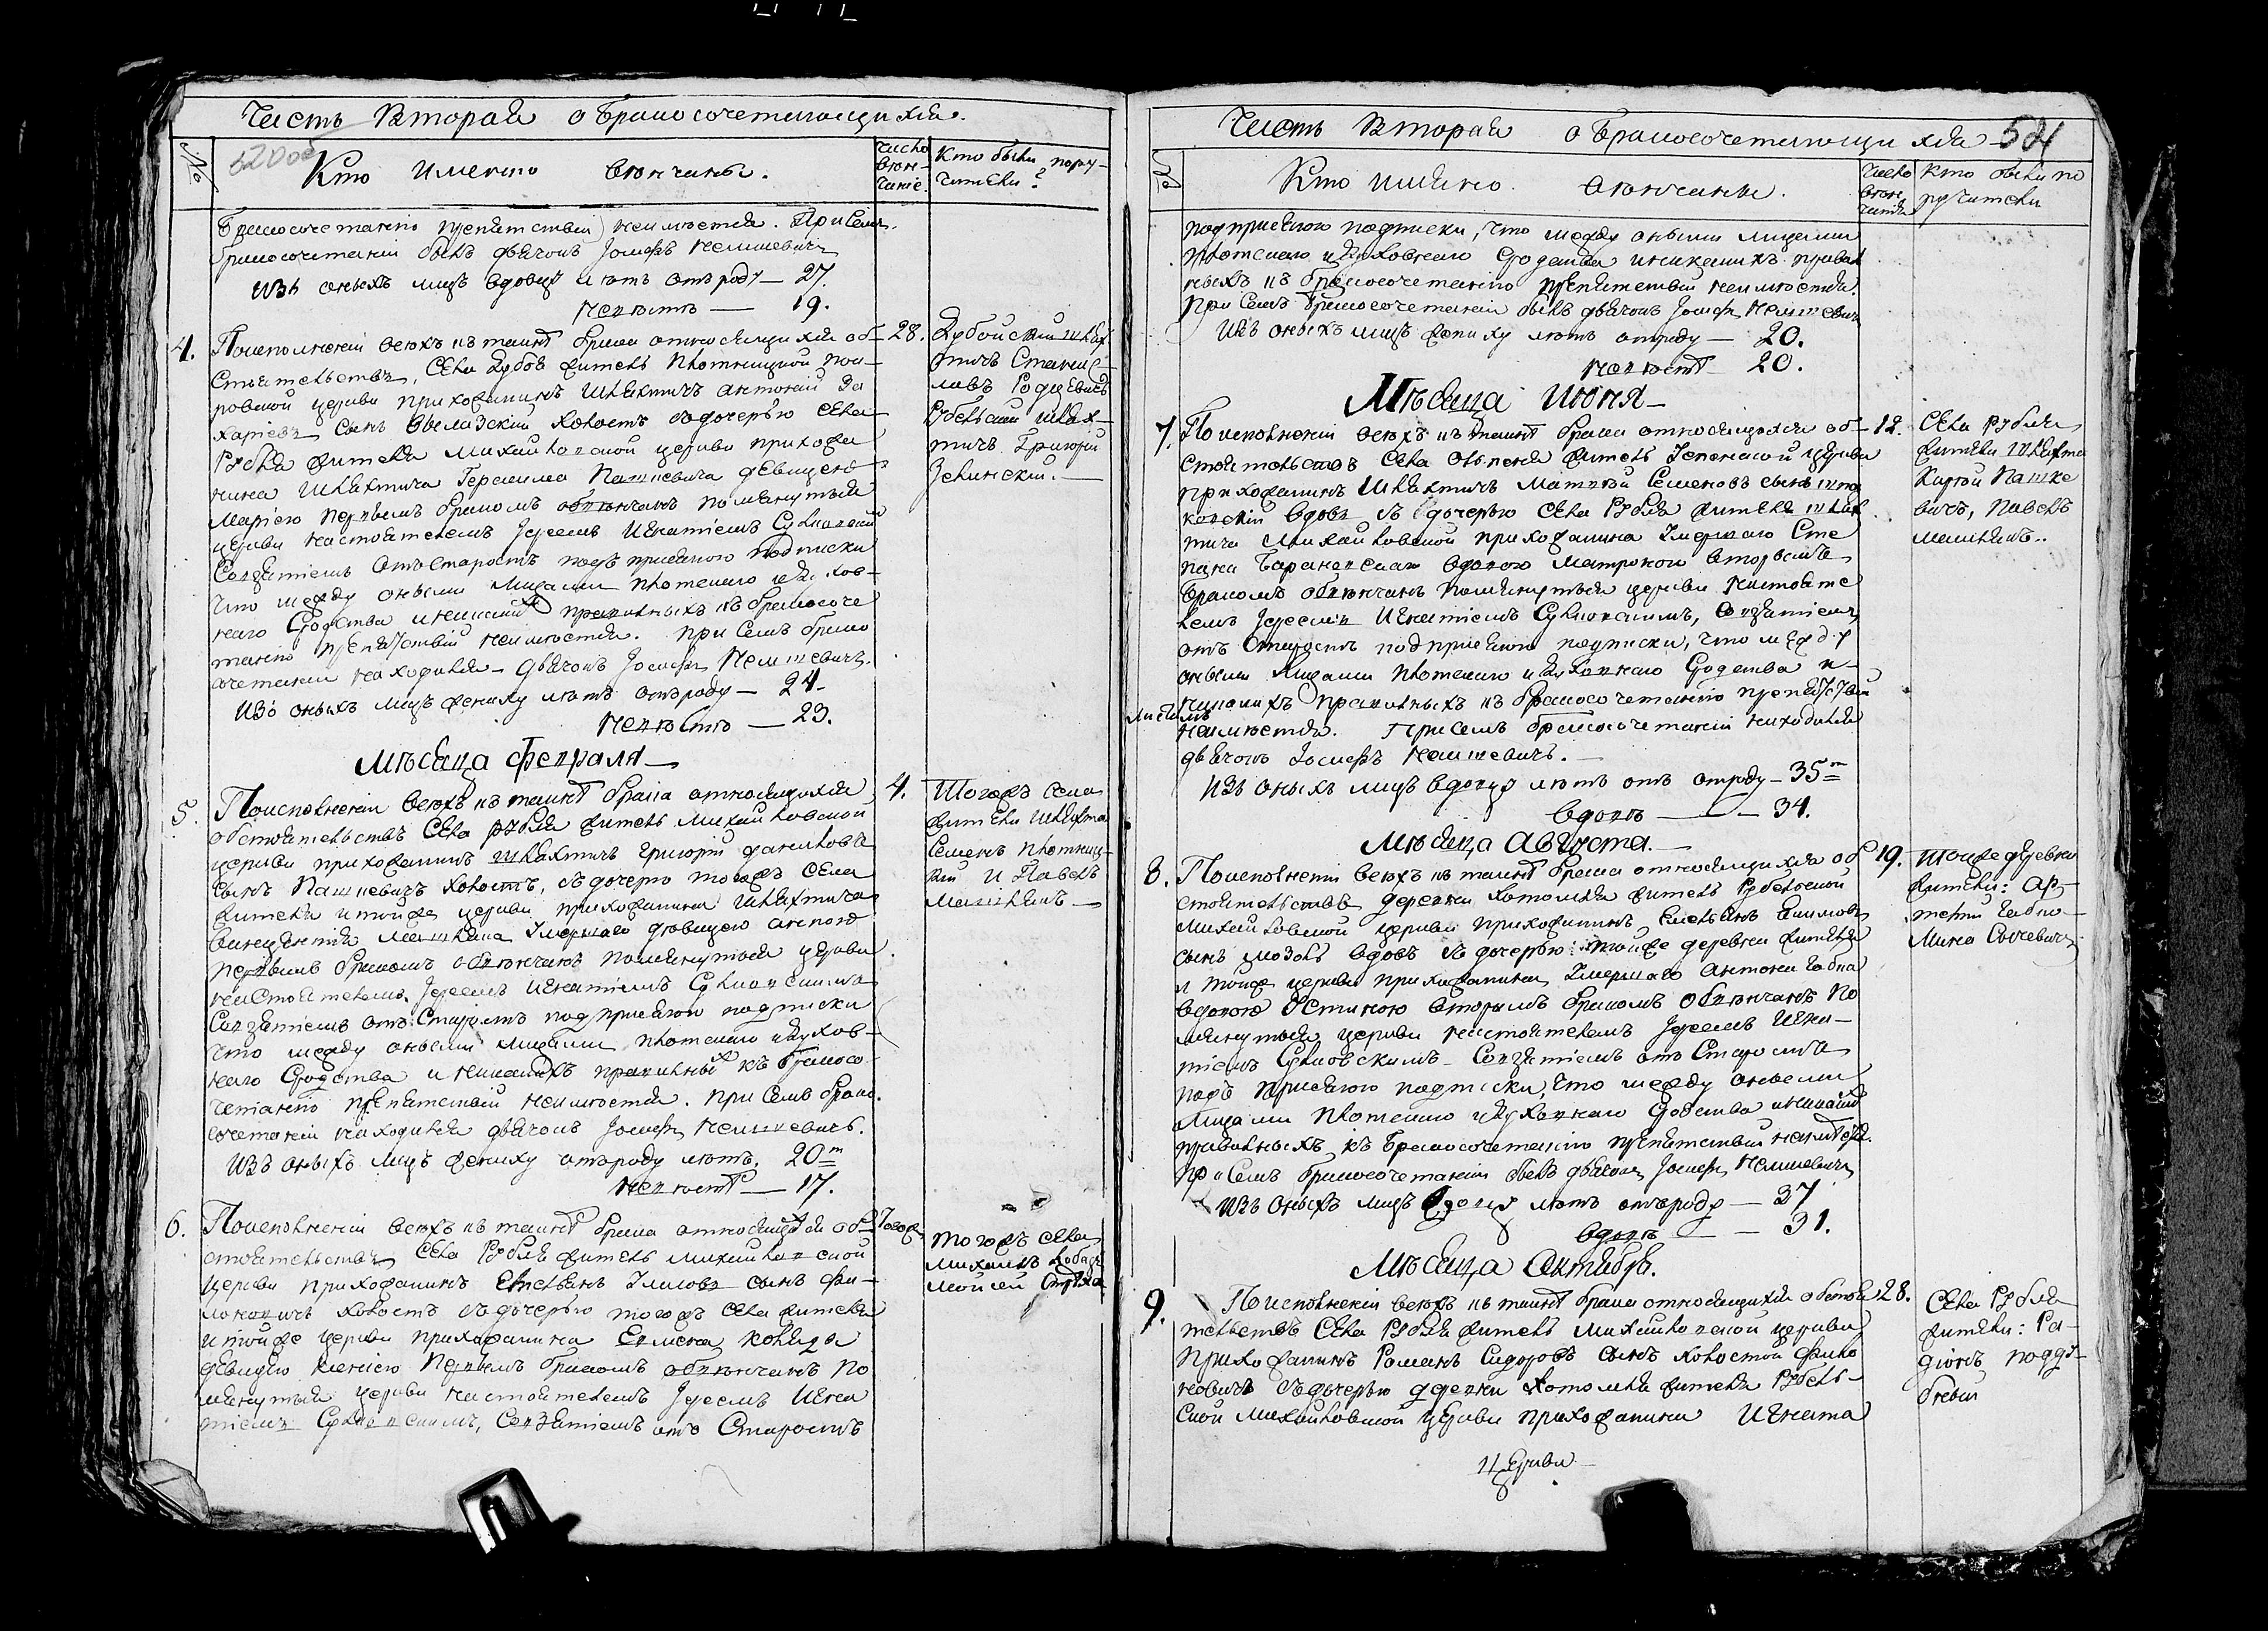 Часть Вторая о Бракосочетающихся.
520об
№
Кто именно вѣнчаны.
число вѣнчанія.
Кто были поручители?
бракосочетанію препятствій неимѣется. При семъ
бракосочетаніи былъ дьячокъ Іосифъ Немшевичъ
Изъ оныхъ лицъ вдовцу лѣтъ отъ роду — 27.
Невѣстѣ — 19.
4. Поисполненіи всѣхъ къ таинѣ брака относящихся об- 28.
стоятельствъ, села Дубоя житель Плотницкой По-
ровской церкви прихожанинъ Шляхтичъ Антоній За
харіевъ сынъ холостъ съ дочерью села
Рубля жителя Михайловской церкви прихожа
нина Шляхтича Герасима Пашкевича дѣвицею
Маріею первымъ бракомъ обвѣнчанъ помянутыя
церкви настоятелемъ Іереемъ Игнатіемъ Сулковскимъ
Совзятіемъ отъ старостъ подъ присягою подписки
что между оными лицами плотскаго и духов-
наго сродства и никакихъ правильныхъ къ бракосоче
танію препятствій неимѣется. при семъ брако
сочетаніи находился — дьячокъ Іосифъ Немшевичъ.
Изъ оныхъ лицъ жениху лѣтъ отъ роду — 24.
Невѣстѣ — 23.
Дубойскій шлях
тичъ Станис
лавъ Родцевичъ
Рубельскій шлях-
тичъ Григорій
Зелинскій. —
Мѣсяца Февраля —
5. Поисполненіи всѣхъ къ таинѣ брака относящихся 4.
обстоятельствъ села Рубля житель Михайловской
церкви прихожанинъ шляхтичъ Григорій Даниловъ
сынъ Пашкевичъ холостъ, съ дочерью тогожъ села
жителя и тойже церкви прихожанина шляхтича
Викентія Малишана Умершаго дѣвицею
первымъ бракомъ обвѣнчанъ помянутыя церкви
настоятелемъ Іереемъ Игнатіемъ Сулковскимъ
Совзятіемъ отъ Старостъ подъ присягою подписки
что между оными лицами плотскаго и духов-
наго сродства и никакихъ правильныхъ къ бракосо
четанію препятствій неимѣется. при семъ брако.
сочетаніи находился дьячокъ Іосифъ Немшевичъ.
Изъ оныхъ лицъ жениху отъ роду лѣтъ. 20
Невѣстѣ — 17.
Тогожъ села
жители шляхта
Семенъ Плотниц-
кій и Павелъ
Малишанъ —
6. Поисполненіи всѣхъ къ таинѣ брака относящихся об Тогож
стоятельствъ села Рубля житель Михайловской
церкви прихожанинъ Емельянъ сынъ Фи-
лоновичъ холостъ съ дочерью тогожъ села жителя
и тойже церкви прихожанина
дѣвицею первымъ бракомъ обвѣнчанъ по
мянутыя церкви настоятелемъ Іереемъ Игна
тіемъ Сулковскимъ, Совзятіемъ отъ Старостъ
Тогожъ села
Михаилъ
Моисей
Часть Вторая о Бракосочетающихся 521
№
Кто именно вѣнчаны.
число вѣнчанія
Кто были поручители
подъ присягою подписки, что между оными лицами
плотскаго и духовнаго сродства и никакихъ правил
ныхъ къ бракосочетанію препятствій неимѣется.
при семъ бракосочетаніи былъ дьячокъ Іосифъ Немшевичъ
Изъ оныхъ лицъ жениху лѣтъ отроду — 20.
Невѣстѣ — 20.
Мѣсяца Июня —
7. Поисполненіи всѣхъ къ таинѣ брака относящихся об- 12.
стоятельствъ села житель церкви
прихожанинъ Шляхтичъ Матвѣй Семеновъ сынъ
вдовъ съ дочерью села Рубля жителя шлях
тича Михайловской прихожанина Умершаго Сте
пана вдовою Матроною вторымъ
бракомъ обвѣнчанъ помянутыя церкви настояте
лемъ Іереемъ Игнатіемъ Сулковскимъ, Совзятіемъ
отъ старостъ подъ присягою подписки, что между
оными лицами плотскаго и духовнаго сродства и
никакихъ правильныхъ къ бракосочетанію препятствій
неимѣется. При семъ бракосочетаніи находился
дьячокъ Іосифъ Немшевичъ. —
Изъ оныхъ лицъ вдовцу лѣтъ отъ отроду — 35
вдовѣ — 34.
Села Рубля
жители шляхта
Карпъ Пашке
вичъ, Павелъ
Малишанъ..
Мѣсяца Августа. —
8. Поисполненіи всѣхъ къ таинѣ брака относящихся об 19.
стоятельствъ деревни Хотомля житель Рубельской
Михайловской церкви прихожанинъ Емельянъ Якимовъ
сынъ Мозоль вдовъ съ дочерью: тойже деревни жителя
и тойже церкви прихожанина Умершаго Антона Габца
вдовою Устиною вторымъ бракомъ обвѣнчанъ по
мянутыя церкви настоятелемъ Іереемъ Игна-
тіемъ Сулковскимъ — Совзятіемъ отъ Старостъ
подъ присягою подписки, что между оными
лицами плотскаго и духовнаго сродства и никакихъ
правильныхъ къ бракосочетанію препятствій неимѣется.
при семъ бракосочетаніи былъ дьячокъ Іосифъ Немшевичъ
Изъ оныхъ лицъ вдовцу лѣтъ отъ роду — 37
вдовѣ — 31.
Тойже деревни
жители: Ар-
темій
Мина Сычевичъ
Мѣсяца Октября.
9. Поисполненіи всѣхъ къ таинѣ брака относящихся обстоя 28.
тельствъ села Рубля житель Михайловской церкви
прихожанинъ Романъ Сидоровъ сынъ холостой Фило
новичъ съ дочерью деревни Хотомля жителя Рубель-
ской Михайловской церкви прихожанина Игната
Села Рубля
жители: Ра-
діонъ Подду-
бный
церкви